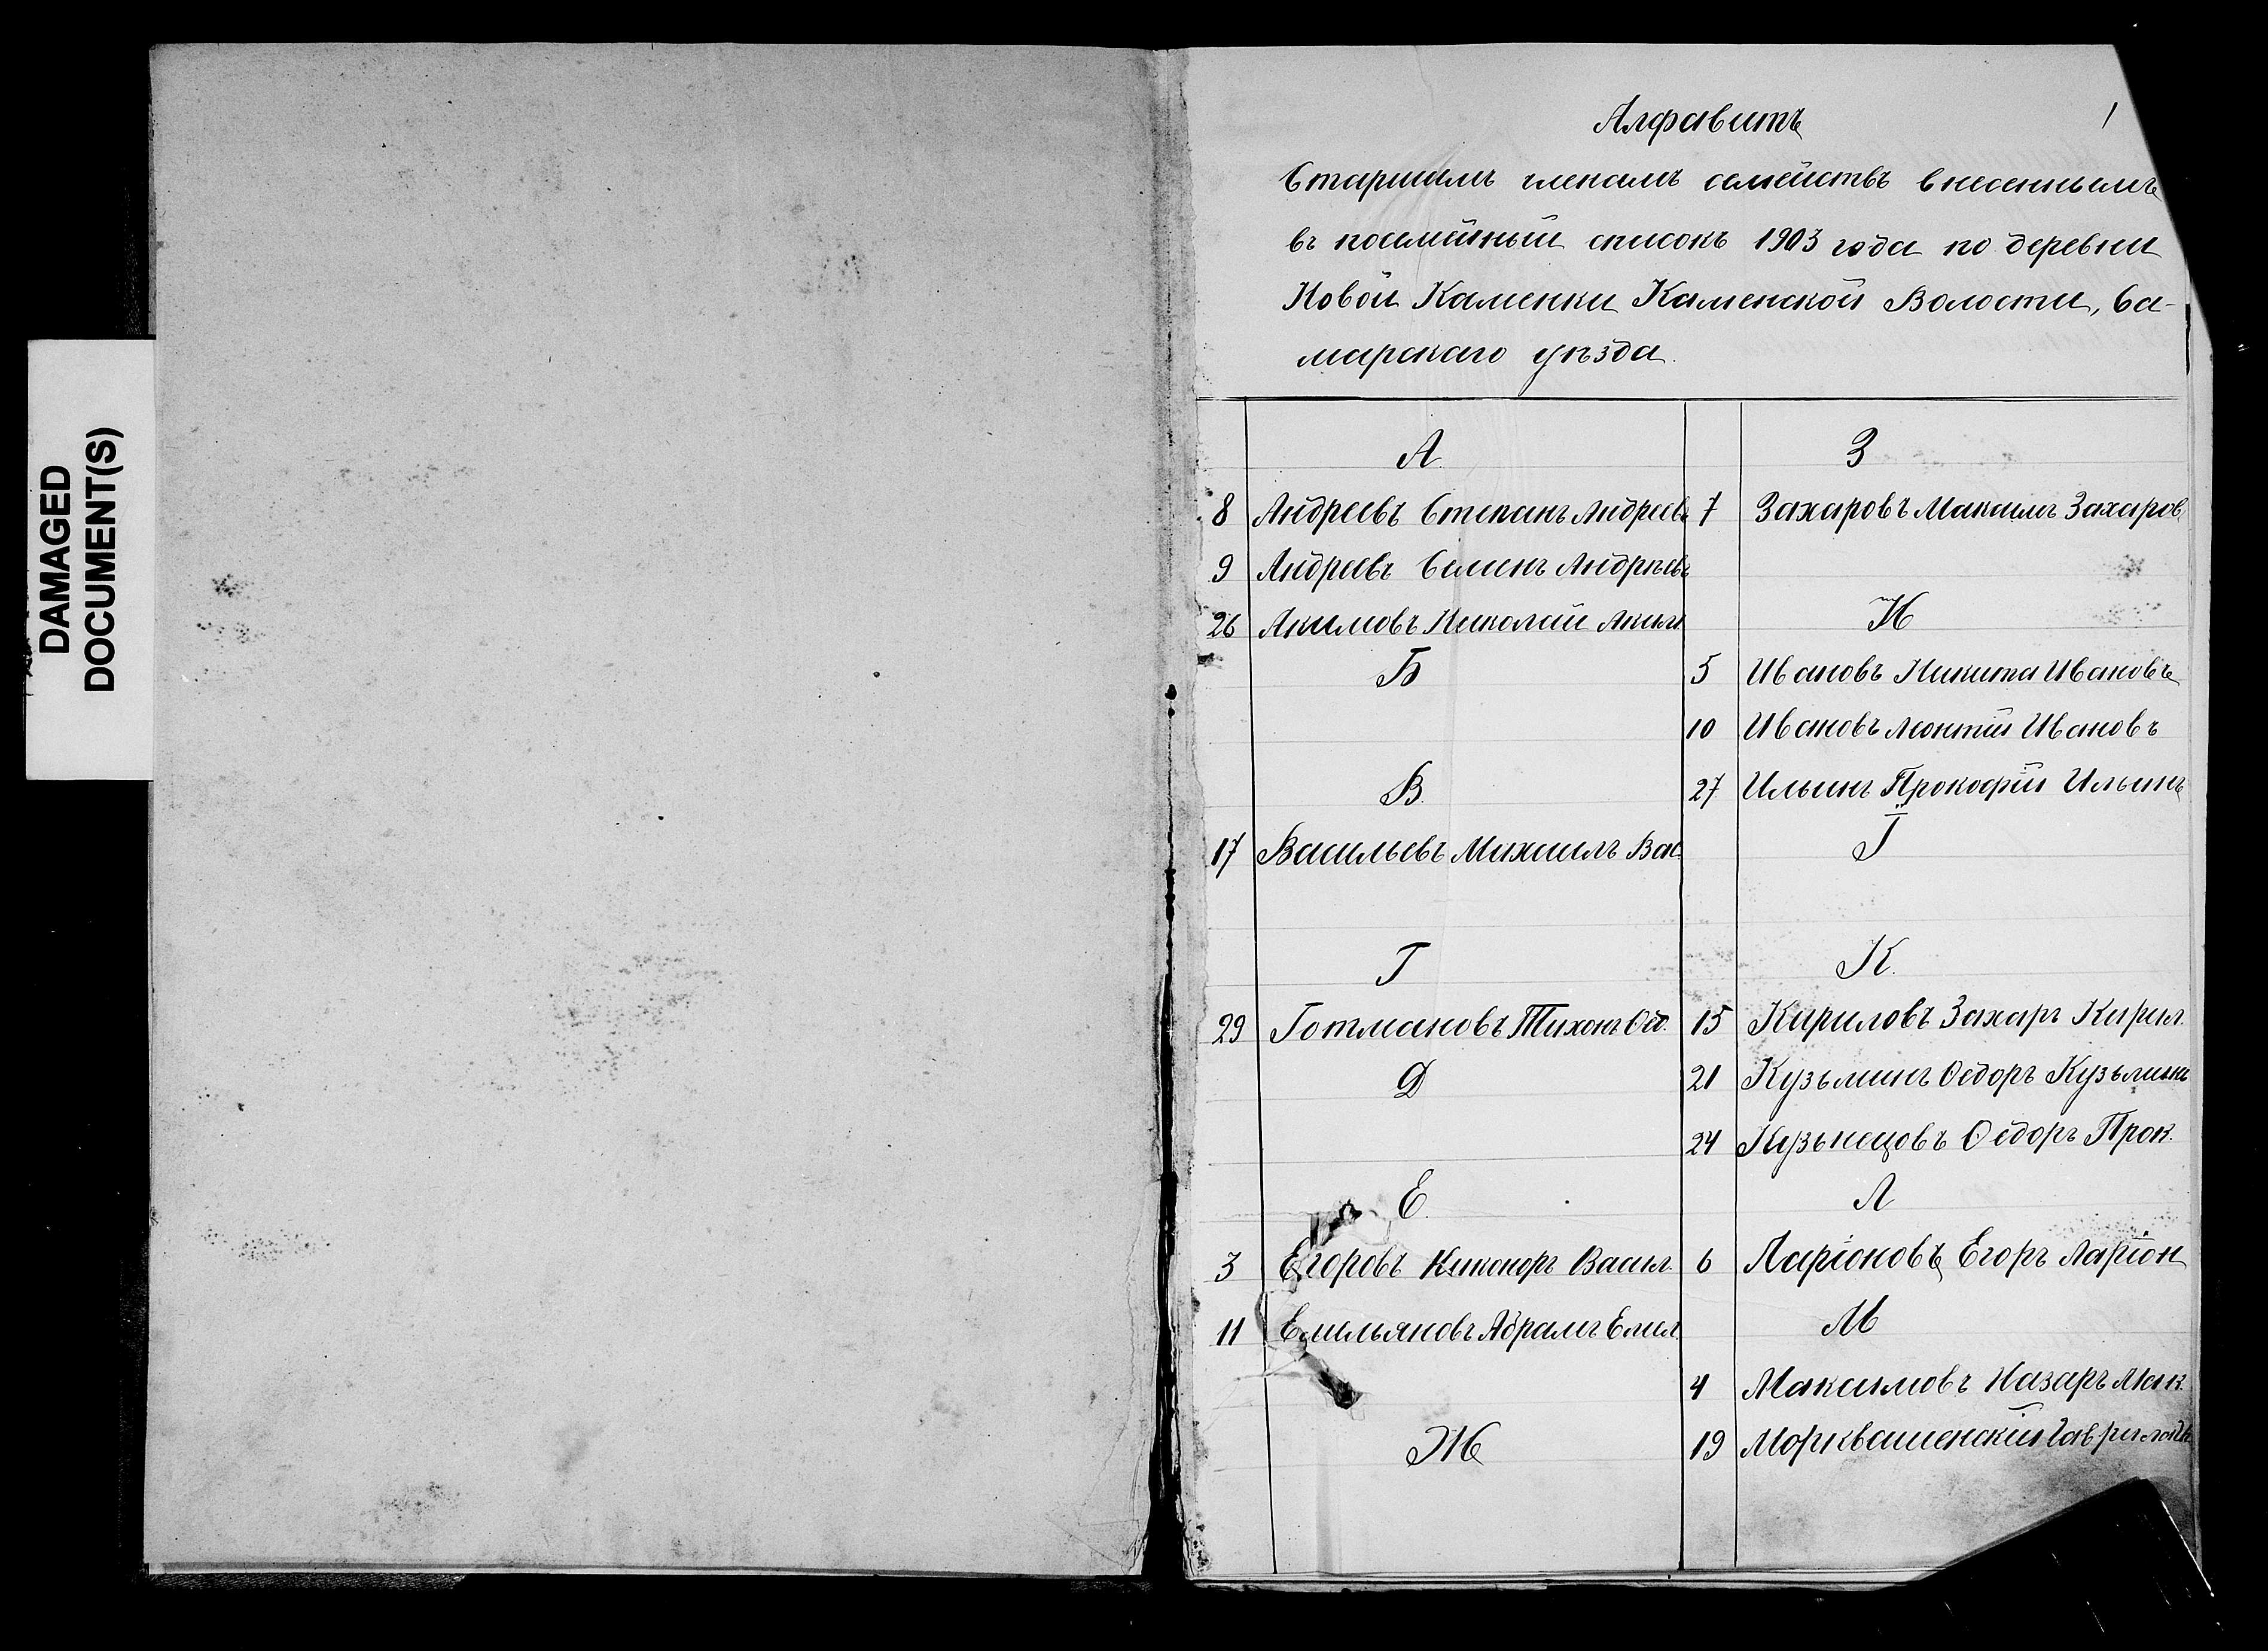 DAMAGED
DOCUMENT(S)
1
Алфавитъ
Старшимъ членамъ семействъ внесеннымъ
въ посемѣйный списокъ 1903 года по деревни
Новой Каменки Каменской Волости, Са-
марскаго уѣзда.
А.
8 Андреевъ Степанъ Андреевъ
9 Андреевъ Семенъ Андрѣевъ
26 Акимовъ Николай Аким.
Б
В.
17 Васильевъ Михаилъ Вас.
Г
29 Готмановъ Тихонъ Ѳед.
Д
Е.
3 Егоровъ Никоноръ Васил.
11 Емельяновъ Абрамъ Емел.
Ж
З
7 Захаровъ Максимъ Захаров.
И
5 Ивановъ Никита Ивановъ
10 Ивановъ Леонтій Ивановъ
27 Ильинъ Прокофій Ильинъ
Ї
К.
15 Кириловъ Захаръ Кирил.
21 Кузьминъ Ѳедоръ Кузьминъ
24 Кузьнецовъ Ѳедоръ Прок.
Л
6 Ларіоновъ Егоръ Ларіон
М
4 Максимовъ Назаръ Мак.
19 Морквашенскій Гаврило